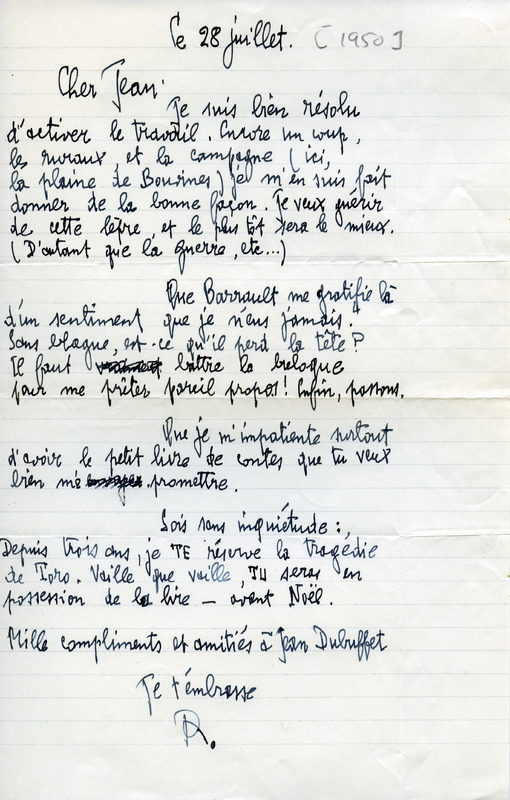 le 28 juillet. [1950]
Cher Jean
Je suis bien résolu
d'activer le travail. Encore un coup,
les ruraux, et la campagne (ici,
la plaine de Bouvines) je m'en suis fait
donner de la bonne façon. Je veux guérir
de cette lèpre, et le plus tôt sera le mieux.
(D'autant que la guerre, etc...)
Que Barrault me gratifie là
d'un sentiment que je n'eus jamais!
Sans blague, est-ce qu'il perd la tête?
Il faut battre la breloque
pour me prêter pareil propos! Enfin, passons.
Que je m'impatiente surtout
d'avoir le petit livre de contes que tu veux
bien me promettre.
Sois sans inquiétude:,
Depuis trois ans, je TE réserve la tragédie
de Toro. Vaille que vaille, TU seras en
possession de la lire — avant Noël.
Mille compliments et amitiés à Jean Dubuffet
Je t'embrasse
R.